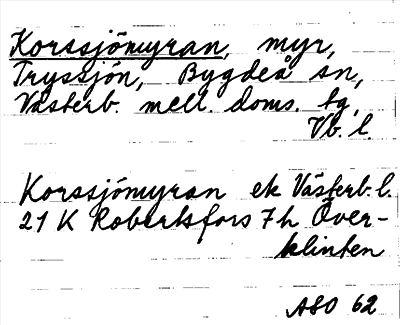 Korssjömyran, myr,
Tryssjön, Bygdeå sn,
Västerb. mell. doms. tg,
Vb. l.
Korssjömyran ek Västerb. l.
21 K Robertsfors 7 h Över-
klinten
ASO 62